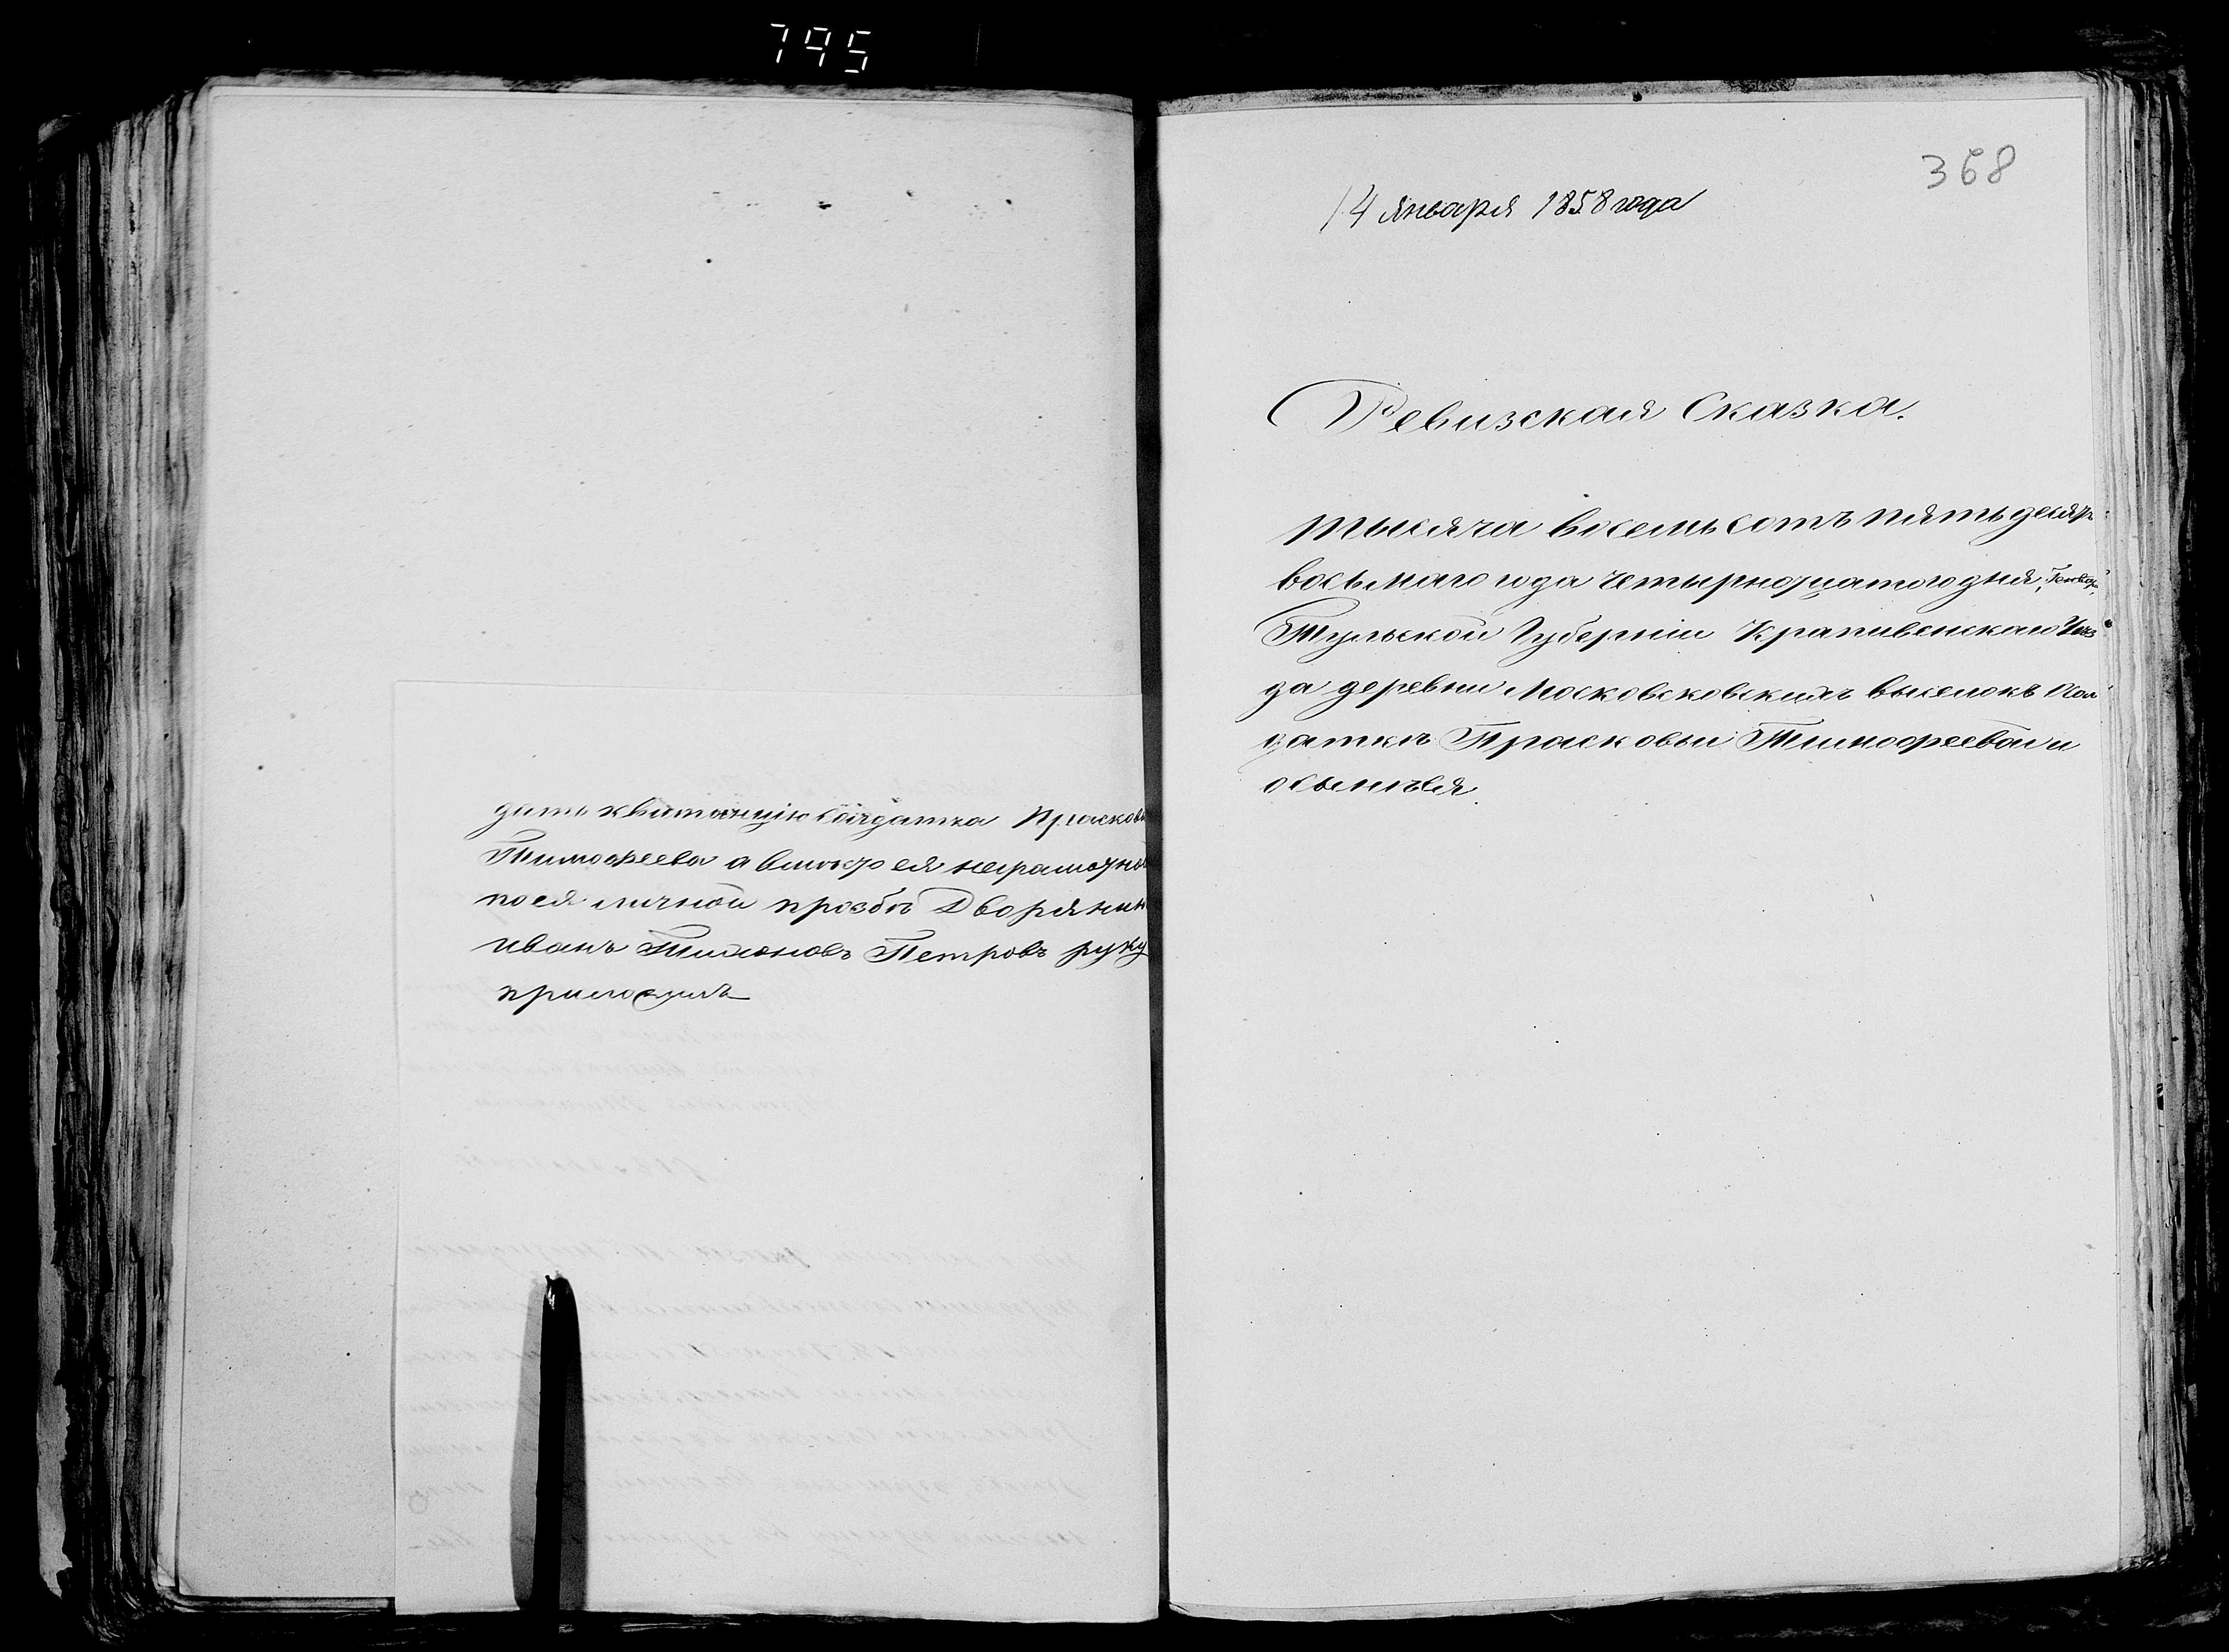 795
дать квитанцію Солдатка Прасковья
Тимофеева а вместо ея неграмотной
по ея личной прозбѣ Дворянин
иванъ Тихоновъ Петровъ руку
приложилъ
368
14 января 1858 года
Ревизская Сказка.
тысяча восемь сотъ пять десятъ
восьмаго года Четырнодцатого дня Генваря
Тульской Губерніи Крапивенскаго Уез
да деревни Московсковскихъ выселокъ Сол
датки Прасковьи Тимофеевой и